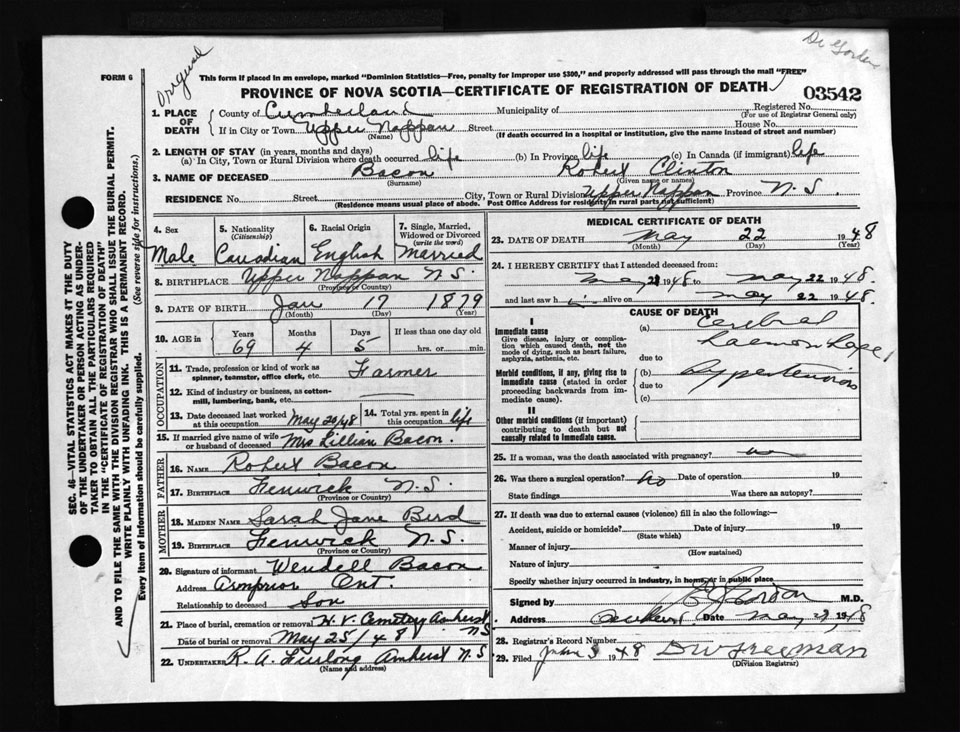 Original
Dr Gordon
FORM 6
This form if placed in an envelope, marked "Dominion Statistics—Free, penalty for improper use $300," and properly addressed will pass through the mail "FREE"
PROVINCE OF NOVA SCOTIA—CERTIFICATE OF REGISTRATION OF DEATH
03542
1. PLACE OF DEATH
County of Cumberland Municipality of Registered No.
(For use of Registrar General only)
If in City or Town Upper Nappan Street House No.
(Name) (If death occurred in a hospital or institution, give the name instead of street and number)
2. LENGTH OF STAY (in years, months and days)
(a) In City, Town or Rural Division where death occurred life (b) In Province life (c) In Canada (if immigrant) life
3. NAME OF DECEASED Bacon Robert Clinton
(Surname) (Given name or names)
RESIDENCE No. Street City, Town or Rural Division Upper Nappan Province N.S.
(Residence means usual place of abode. Post Office Address for residents in rural parts not sufficient)
4. Sex 5. Nationality 6. Racial Origin 7. Single, Married,
(Citizenship) Widowed or Divorced
(write the word)
Male Canadian English Married
8. BIRTHPLACE Upper Nappan N.S.
(Province or Country)
9. DATE OF BIRTH Jan 17 1879
(Month) (Day) (Year)
10. AGE in Years Months Days If less than one day old
69 4 5 hrs. or min.
OCCUPATION
11. Trade, profession or kind of work as Farmer
spinner, teamster, office clerk, etc.
12. Kind of industry or business, as cotton-
mill, lumbering, bank, etc.
13. Date deceased last worked at this occupation May 20/48 14. Total yrs. spent in this occupation life
15. If married give name of wife or husband of deceased Mrs Lillian Bacon.
FATHER
16. NAME Robert Bacon
17. BIRTHPLACE Fenwick N.S.
(Province or Country)
MOTHER
18. MAIDEN NAME Sarah Jane Bird
19. BIRTHPLACE Fenwick N.S.
(Province or Country)
20. Signature of informant Wendell Bacon
Address Arnprior Ont.
Relationship to deceased Son
21. Place of burial, cremation or removal H.V. Cemetery Amherst N.S.
Date of burial or removal May 25/48
22. UNDERTAKER R. A. Furlong Amherst N.S.
(Name and address)
MEDICAL CERTIFICATE OF DEATH
23. DATE OF DEATH May 22 1948
(Month) (Day) (Year)
24. I HEREBY CERTIFY that I attended deceased from:
May 1948 to May 22 1948.
and last saw h im alive on May 22 1948.
CAUSE OF DEATH
I
Immediate cause (a) Cerebral
Give disease, injury or complica-
tion which caused death, not the haemorrhage
mode of dying, such as heart failure,
asphyxia, asthenia, etc. due to
Morbid conditions, if any, giving rise to (b) Hypertension
immediate cause (stated in order due to
proceeding backwards from im-
mediate cause). (c)
II
Other morbid conditions (if important)
contributing to death but not
causally related to immediate cause.
25. If a woman, was the death associated with pregnancy?
26. Was there a surgical operation? no Date of operation 19
State findings Was there an autopsy?
27. If death was due to external causes (violence) fill in also the following:—
Accident, suicide or homicide? Date of injury 19
(State which)
Manner of injury
(How sustained)
Nature of injury
Specify whether injury occurred in industry, in home, or in public place
Signed by Gordon M.D.
Address Amherst Date May 1948
28. Registrar's Record Number
29. Filed June 3 1948 D W Freeman
(Division Registrar)
SEC. 46—VITAL STATISTICS ACT MAKES IT THE DUTY
OF THE UNDERTAKER OR PERSON ACTING AS UNDER-
TAKER TO OBTAIN ALL THE PARTICULARS REQUIRED
IN THE "CERTIFICATE OF REGISTRATION OF DEATH"
AND TO FILE THE SAME WITH THE DIVISION REGISTRAR WHO SHALL ISSUE THE BURIAL PERMIT.
WRITE PLAINLY WITH UNFADING INK. THIS IS A PERMANENT RECORD.
Every item of information should be carefully supplied. (See reverse side for instructions.)